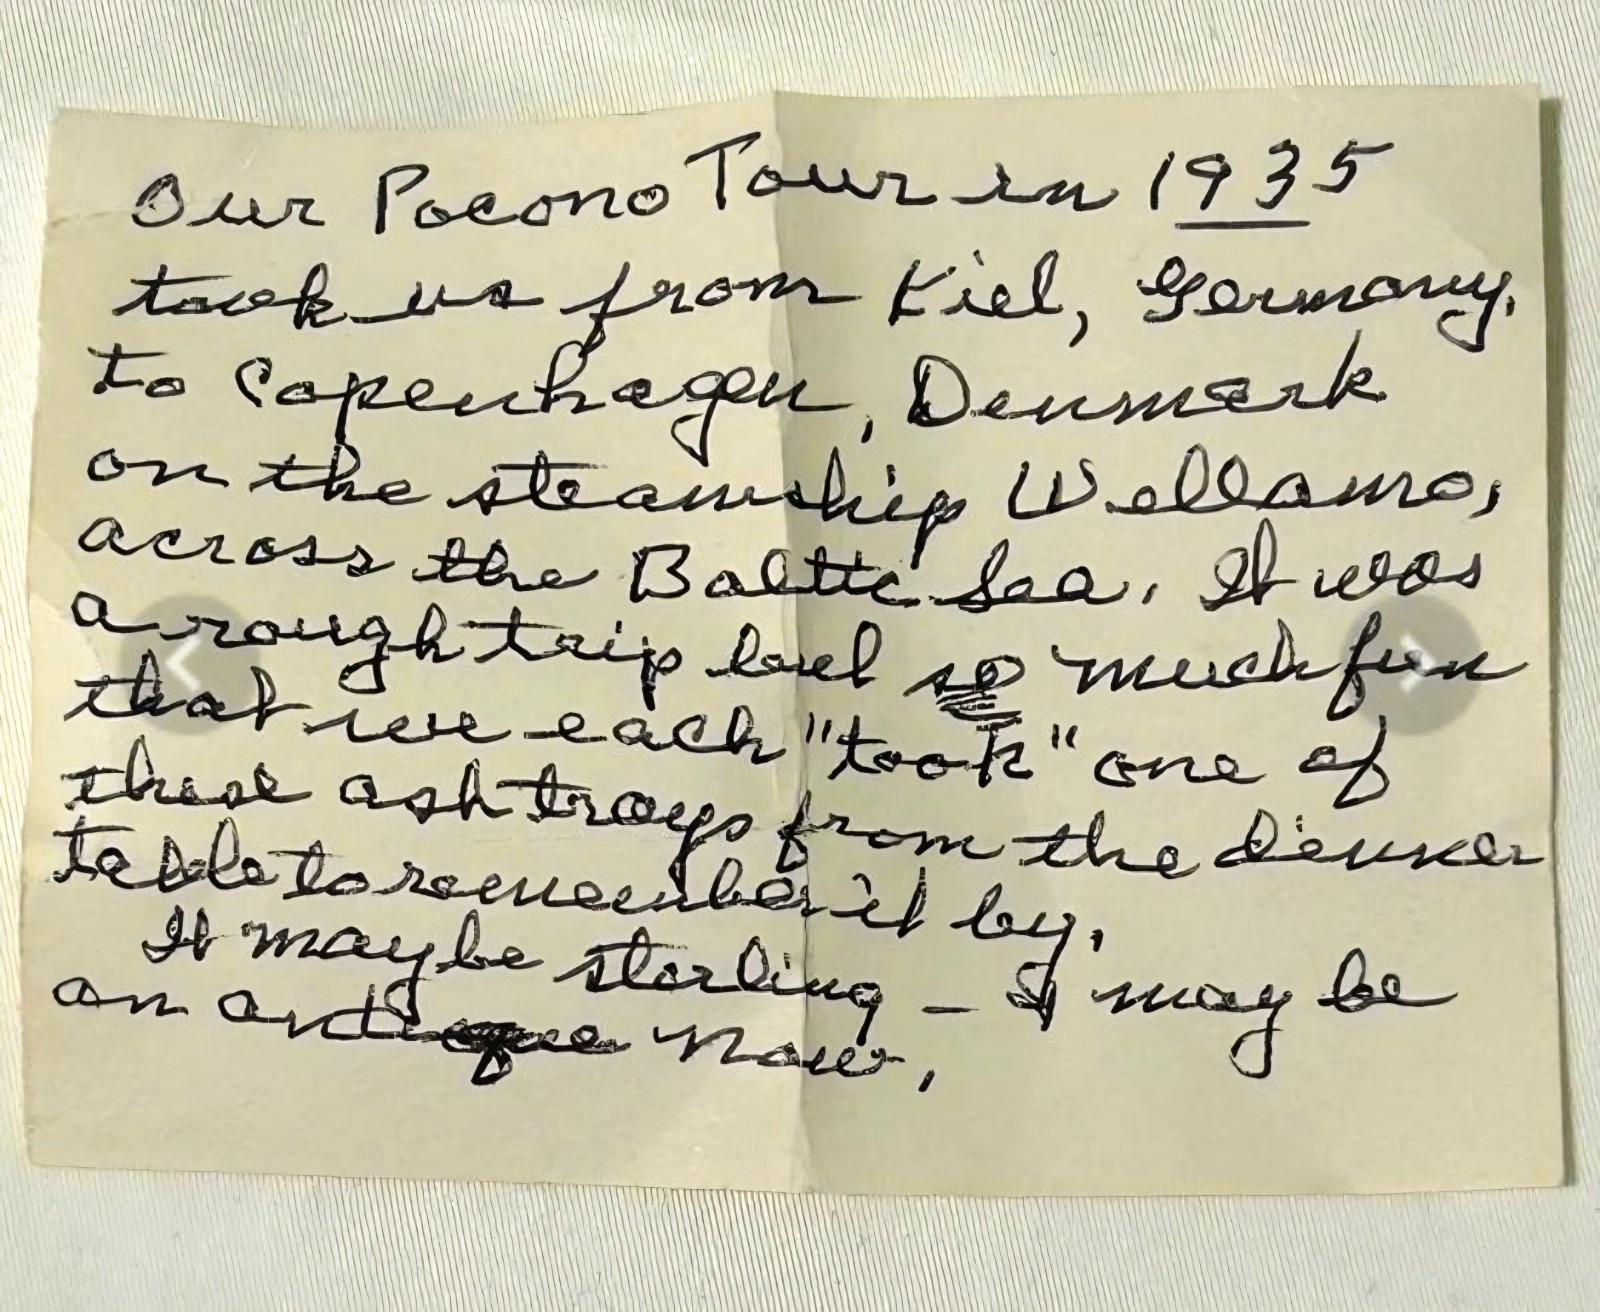 Our Pocono Tour in 1935
took us from Kiel, Germany,
to Copenhagen, Denmark
on the steamship Wellamo,
across the Baltic Sea. It was
a rough trip but so much fun
that we each "took" one of
these ash trays from the dinner
table to remember it by.
It maybe sterling – I may be
an antique now.